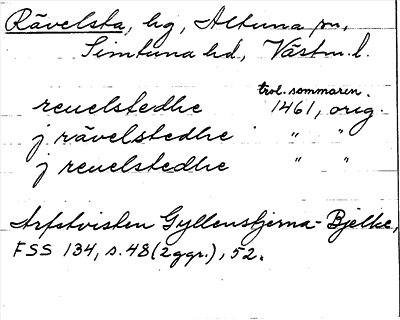 Rävelsta, by, Altuna sn,
Simtuna hd, Västm. l.
trol. sommaren.
reuelstedhe 1461, orig.
j rävelstedhe " "
j reuelstedhe " "
Arfstvisten Gyllenstjerna-Bjelke,
FSS 134, s. 48 (2 ggr.), 52.